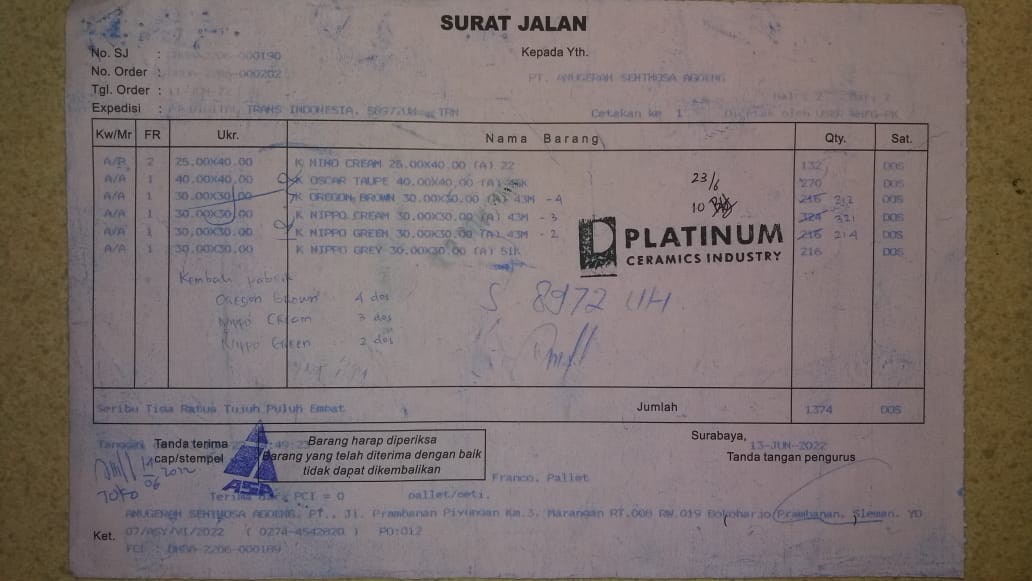 SURAT JALAN
No. SJ :
Kepada Yth.
No. Order : 2206-000202
PT. ANUGERAH SENTHOSA AGOENG
Tgl. Order :
Expedisi : TRANS INDONESIA, S8972UH TRN
Cetakan ke 1
Kw/Mr FR Ukr. Nama Barang Qty. Sat.
A/B 2 25.00X40.00 K NINO CREAM 25.00X40.00 (A) 22 132 DOS
A/A 1 40.00X40.00 K OSCAR TAUPE 40.00X40.00 (A) 270 DOS
A/A 1 30.00X30.00 K OREGON BROWN 30.00X30.00 (A) 43M - 4 216 212 DOS
A/A 1 30.00X30.00 K NIPPO CREAM 30.00X30.00 (A) 43M - 3 324 321 DOS
A/A 1 30.00X30.00 K NIPPO GREEN 30.00X30.00 (A) 43M - 2 216 214 DOS
A/A 1 30.00X30.00 K NIPPO GREY 30.00X30.00 (A) 51K 216 DOS
23/6
10
PLATINUM
CERAMICS INDUSTRY
Kembali pabrik
Oregon brown 4 dos
Nippo Cream 3 dos
Nippo Green 2 dos
S 8972 UH
Seribu Tiga Ratus Tujuh Puluh Empat Jumlah 1374 DOS
Tanda terima
cap/stempel
Barang harap diperiksa
Barang yang telah diterima dengan baik
tidak dapat dikembalikan
Surabaya, 13-JUN-2022
Tanda tangan pengurus
14
06 2022
TOKO
ASA
Franco, Pallet
Terima dari PCI = 0 pallet/peti.
ANUGERAH SENTHOSA AGOENG, PT., Jl. Prambanan Piyungan Km.3, Marangan RT.008 RW.019 Bokoharjo, Prambanan, Sleman, YO
Ket. 07/ASY/VI/2022 ( 0274-4542820 ) PO:012
PCI : 2206-000189